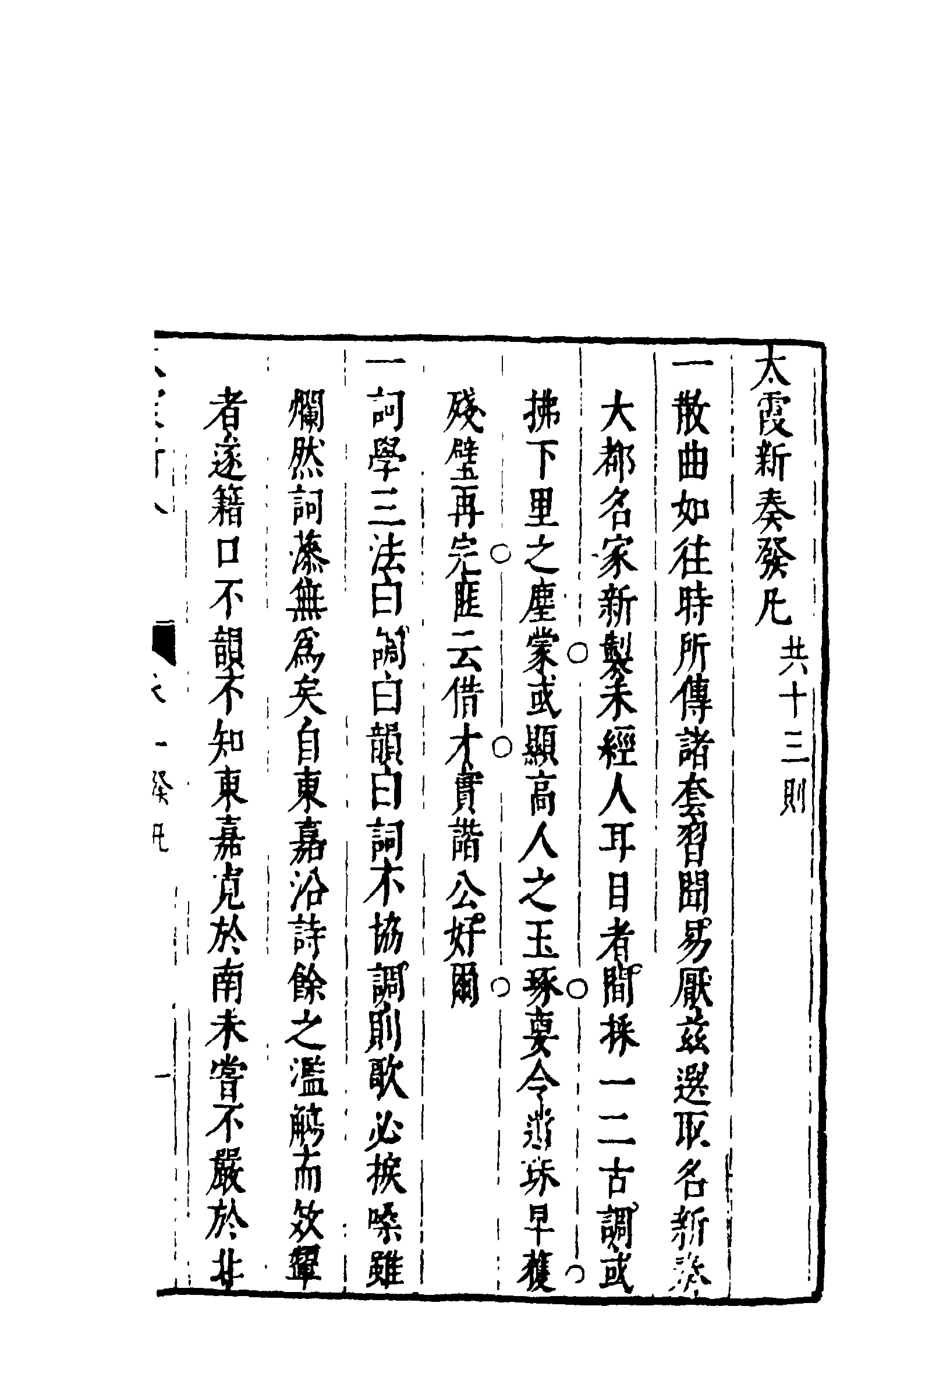 太霞新奏發凡 共十三則
一散曲如徃時所傳諸套習聞易厭茲選取名新奏
大都名家新製未經人耳目者間採一二古調或
拂下里之塵蒙或顯高人之玉琢要令遺珠早獲
殘璧再完匪云借才實諧公好爾
一詞學三法曰調曰韻曰詞不協調則歌必捩嗓雖
爛然詞藻無為矣自東嘉沿詩餘之濫觴而效顰
者遂籍口不韻不知東嘉寬於南未嘗不嚴於北
發凡 一